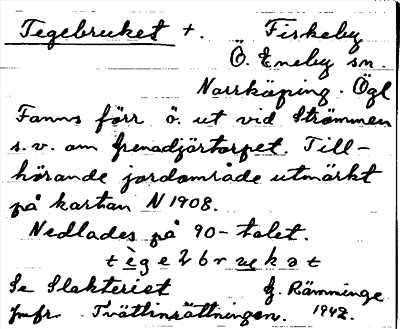 Tegebruket +. Fiskeby
Ö. Eneby sn.
Norrköping. Ögl
Fanns förr ö. ut vid Strömmen
s.v. om grenadjärtorpet. Till-
hörande jordområde utmärkt
på kartan N 1908.
Nedlades på 90-talet.
Se Slakteriet G. Rämminge
Jmfr. Tvättinrättningen. 1942.